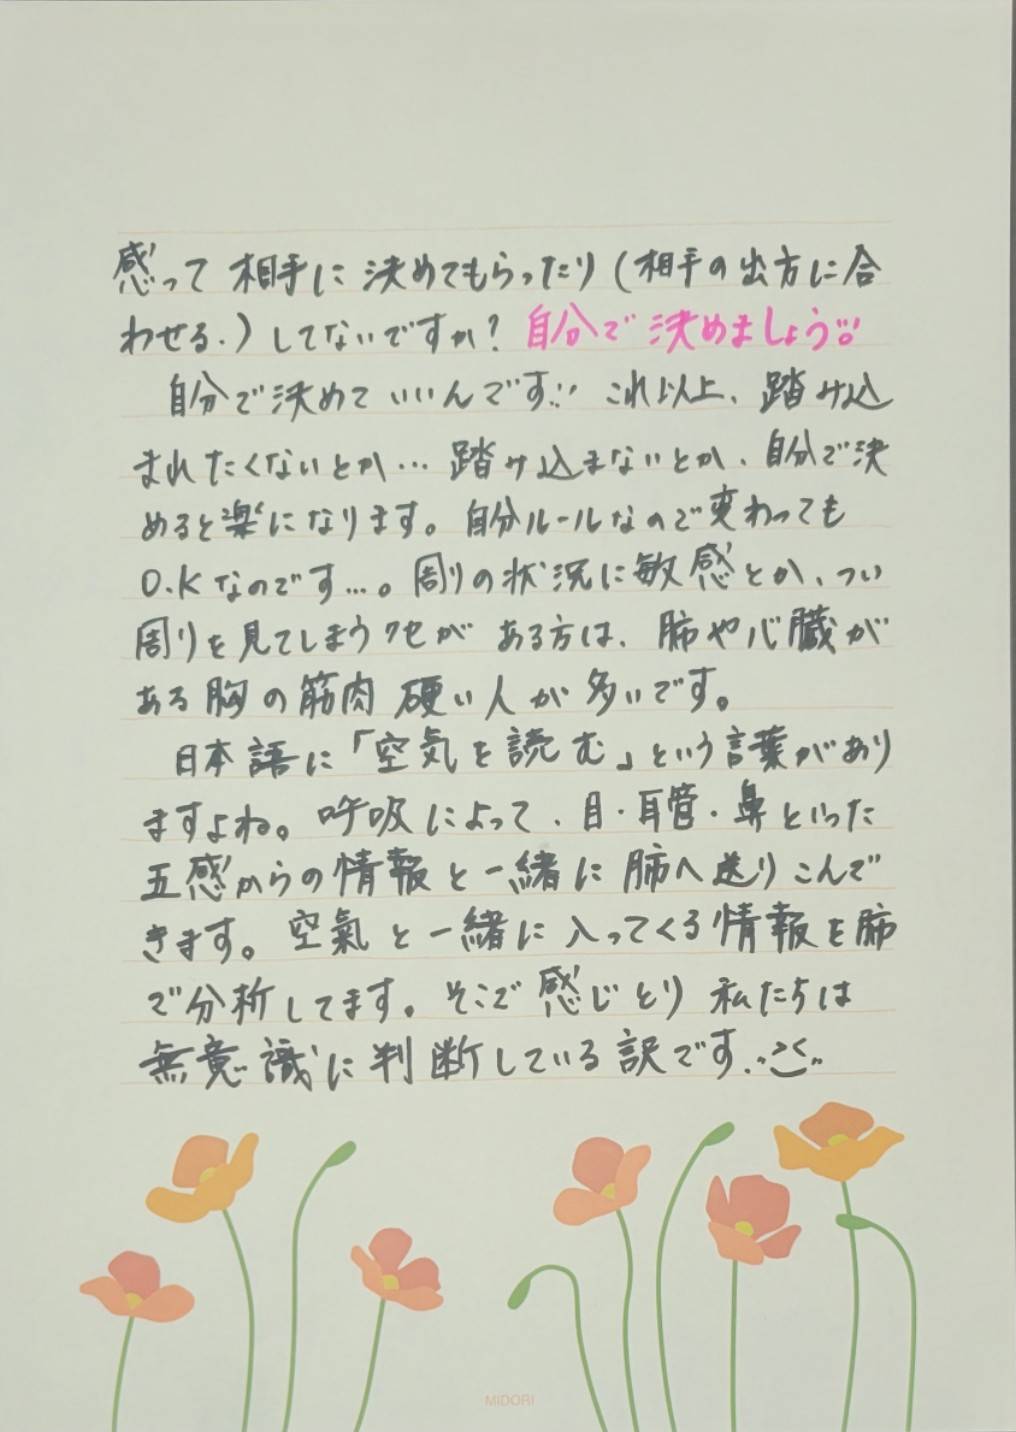 感って相手に決めてもらったり(相手の出方に合
わせる.)してないですか?自分で決めましょう
自分で決めていいんです これ以上、踏み込
まれたくないとか…踏み込まないとか、自分で決
めると楽になります。自分ルールなので変わっても
O.Kなのです…。周りの状況に敏感とか、つい
周りを見てしまうクセがある方は、肺や心臓が
ある胸の筋肉硬い人が多いです。
日本語に「空気を読む」という言葉があり
ますよね。呼吸によって、目・耳管・鼻といった
五感からの情報と一緒に肺へ送りこんで
きます。空氣と一緒に入ってくる情報を肺
で分析してます。そこで感じとり私たちは
無意識に判断している訳です.
MIDORI